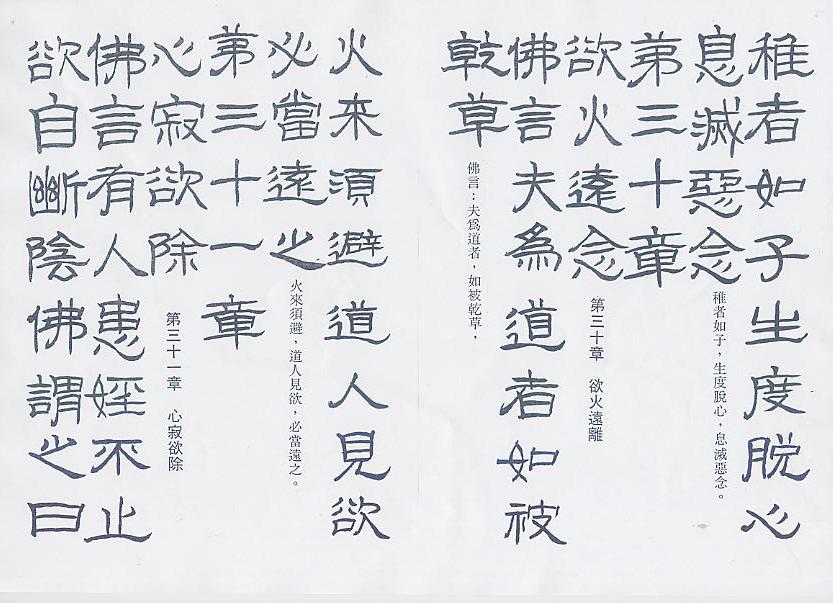 稚者如子生度脱心
息滅惡念
稚者如子，生度脫心，息滅惡念。
第三十章
欲火遠念
第三十章　欲火遠離
佛言夫為道者如被
乾草
佛言：夫爲道者，如被乾草，
火来須避道人見欲
必當遠之
火來須避，道人見欲，必當遠之。
第三十一章
心寂欲除
第三十一章　心寂欲除
佛言有人患婬不止
欲自斷陰佛謂之曰